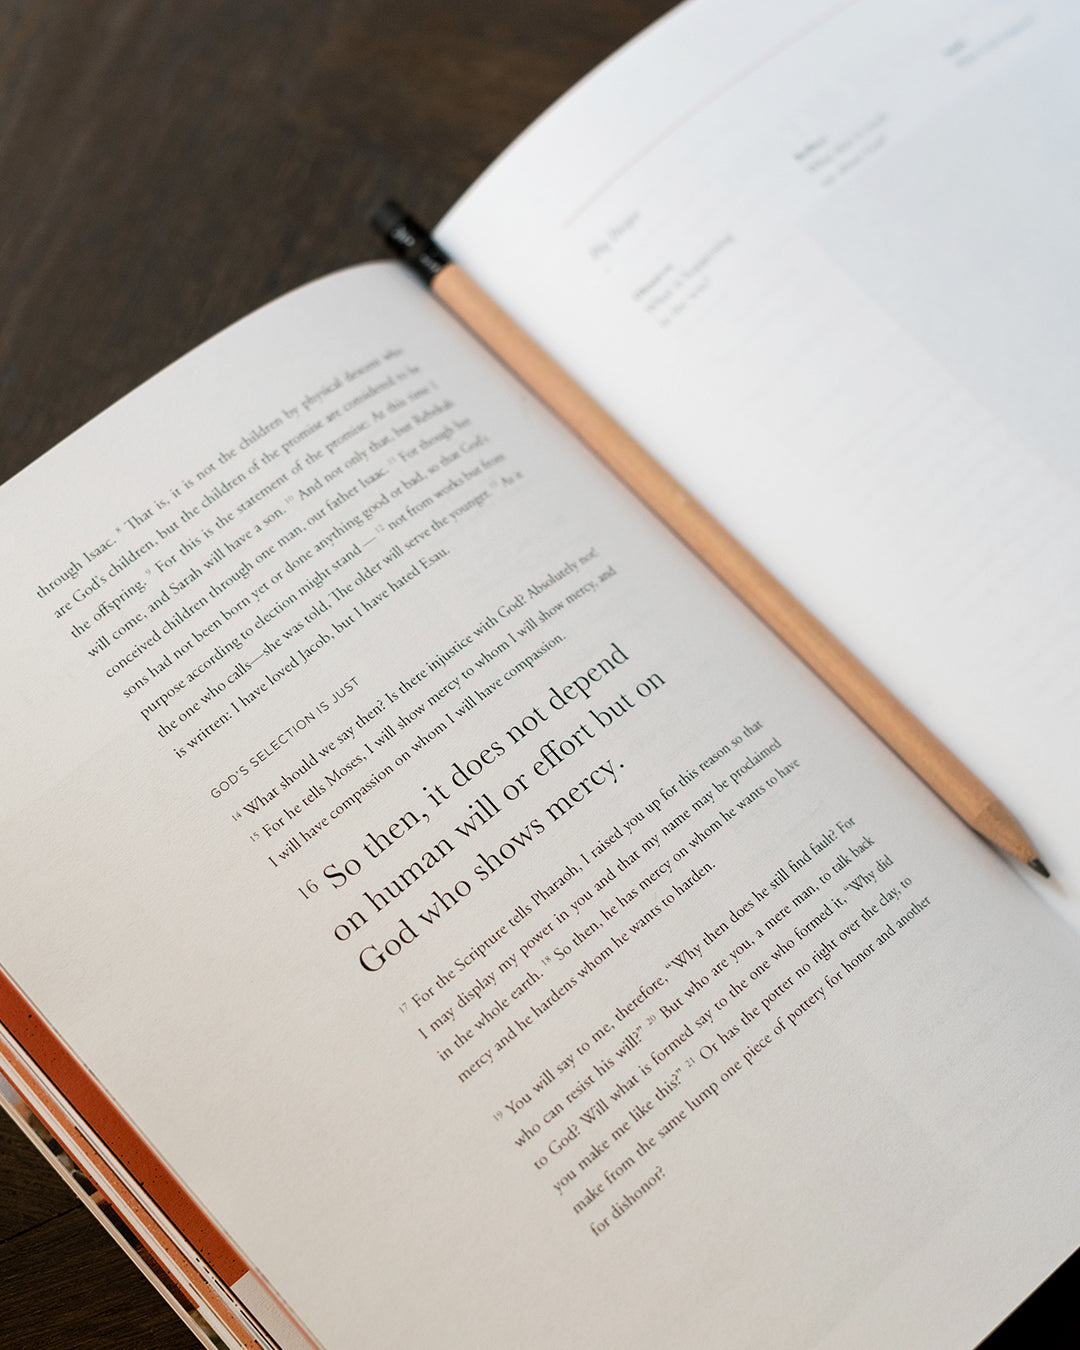 through Isaac. 8 That is, it is not the children by physical descent who
are God's children, but the children of the promise are considered to be
the offspring. 9 For this is the statement of the promise: At this time I
will come, and Sarah will have a son. 10 And not only that, but Rebekah
conceived children through one man, our father Isaac. 11 For though her
sons had not been born yet or done anything good or bad, so that God's
purpose according to election might stand— 12 not from works but from
the one who calls—she was told, The older will serve the younger. 13 As it
is written: I have loved Jacob, but I have hated Esau.
GOD'S SELECTION IS JUST
14 What should we say then? Is there injustice with God? Absolutely not!
15 For he tells Moses, I will show mercy to whom I will show mercy, and
I will have compassion on whom I will have compassion.
16 So then, it does not depend
on human will or effort but on
God who shows mercy.
17 For the Scripture tells Pharaoh, I raised you up for this reason so that
I may display my power in you and that my name may be proclaimed
in the whole earth. 18 So then, he has mercy on whom he wants to have
mercy and he hardens whom he wants to harden.
19 You will say to me, therefore, “Why then does he still find fault? For
who can resist his will?” 20 But who are you, a mere man, to talk back
to God? Will what is formed say to the one who formed it, “Why did
you make me like this?” 21 Or has the potter no right over the clay, to
make from the same lump one piece of pottery for honor and another
for dishonor?
What is happening
in the text?